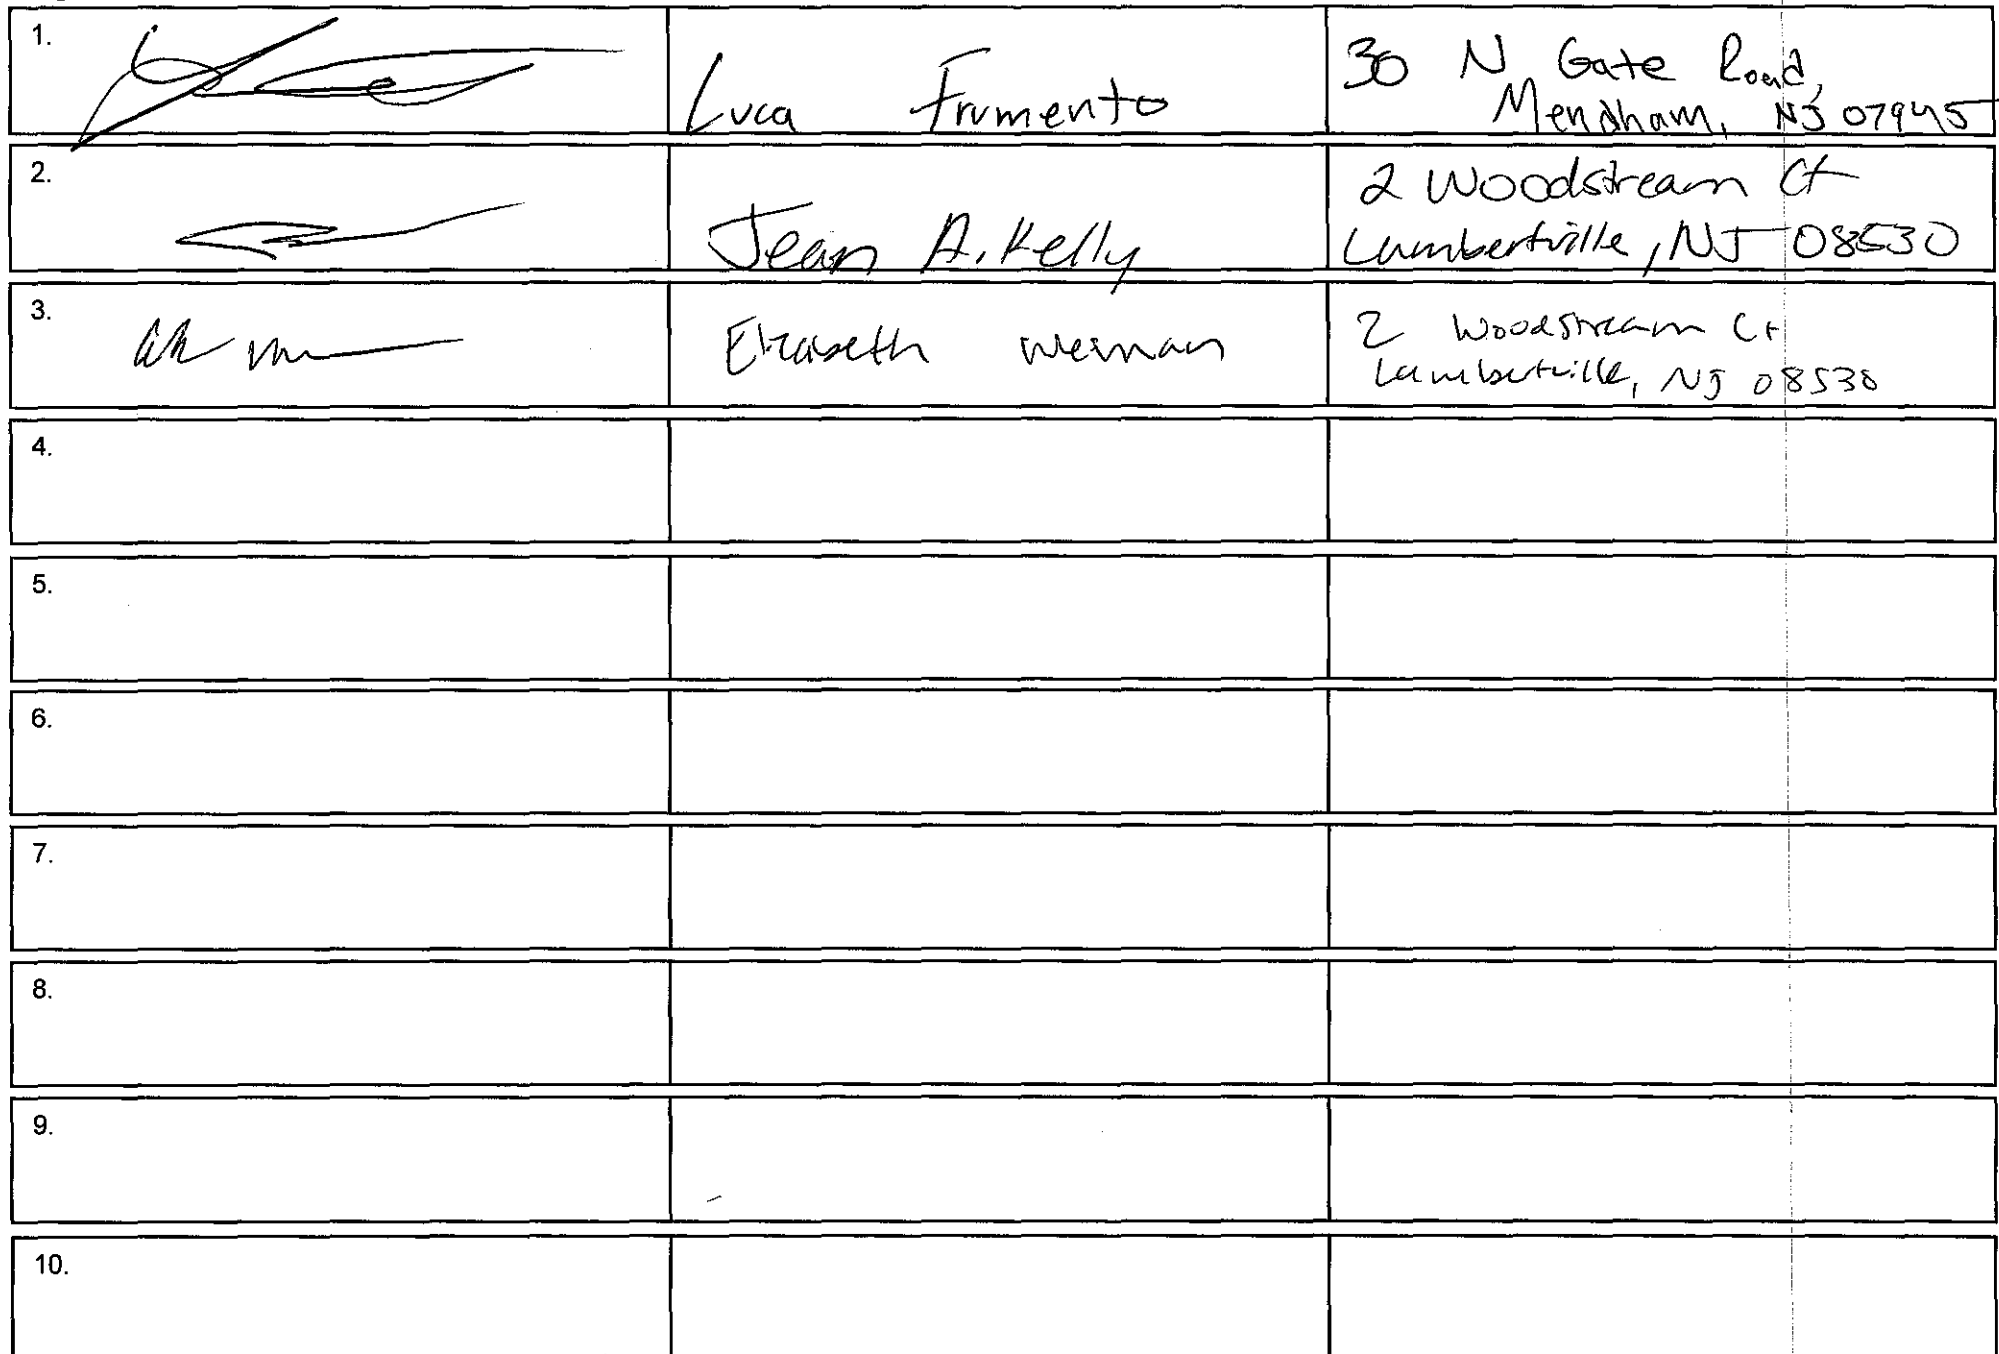 1.
Luca Frumento
30 N Gate Road,
Mendham, NJ 07945
2.
Jean A. Kelly
2 Woodstream Ct
Lambertville, NJ 08530
3.
Elizabeth
2 Woodstream Ct
Lambertville, NJ 08530
4.
5.
6.
7.
8.
9.
10.